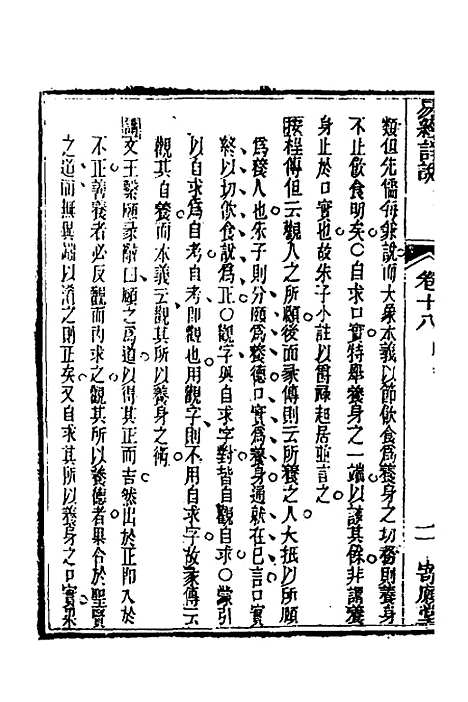 易經詳說 卷十八 二 寄願堂
類但先儒每兼說而大象本義以節飲食為養身之切務則養身
不止飲食明矣○自求口實特舉養身之一端以該其餘非謂養
身止於口實也故朱子小註以爵祿起居並言之
按程傳但云觀人之所頤後面彖傳則云所養之人大抵以所頤
為養人也朱子則分頤為養德口實為養身通就在已言口實
終以切飲食說為正○觀字與自求字對皆自觀自求○蒙引
以自求為自考自考即觀也用觀字則不用自求字故彖傳云
觀其自養而本義云觀其所以養身之術
講文王繫頤彖辭曰頤之為道以得其正而吉然出於正即入於
不正善養者必反觀而內求之觀其所以養德者果合於聖賢
之道而無異端以淆之則正矣又自求其所以養身之口實果